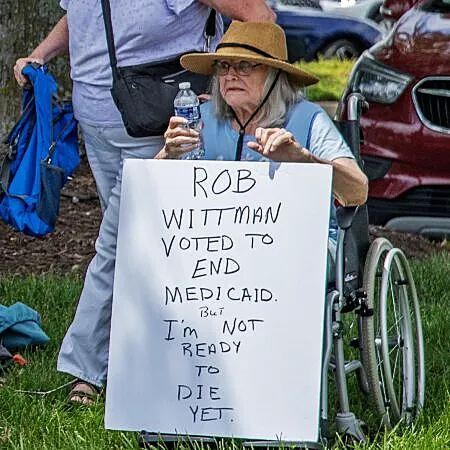 ROB
WITTMAN
VOTED TO
END
MEDICAID.
BUT
I'm NOT
READY
TO
DIE
YET.